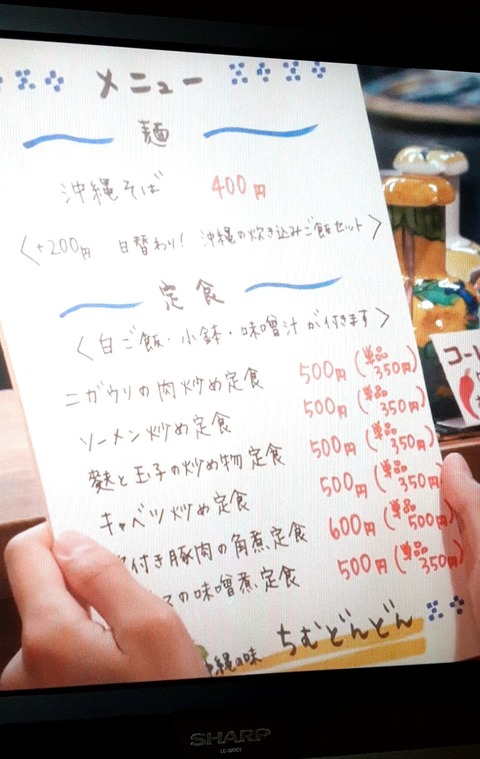 メニュー
麺
沖縄そば 400円
〈+200円 日替わり! 沖縄の炊き込みご飯セット〉
定食
〈白ご飯・小鉢・味噌汁が付きます〉
ニガウリの肉炒め定食 500円(単品350円)
ソーメン炒め定食 500円(単品350円)
麩と玉子の炒め物定食 500円(単品350円)
キャベツ炒め定食 500円(単品350円)
付き豚肉の角煮定食 600円(単品500円)
の味噌煮定食 500円(単品350円)
沖縄の味 ちむどんどん
コーレ
SHARP